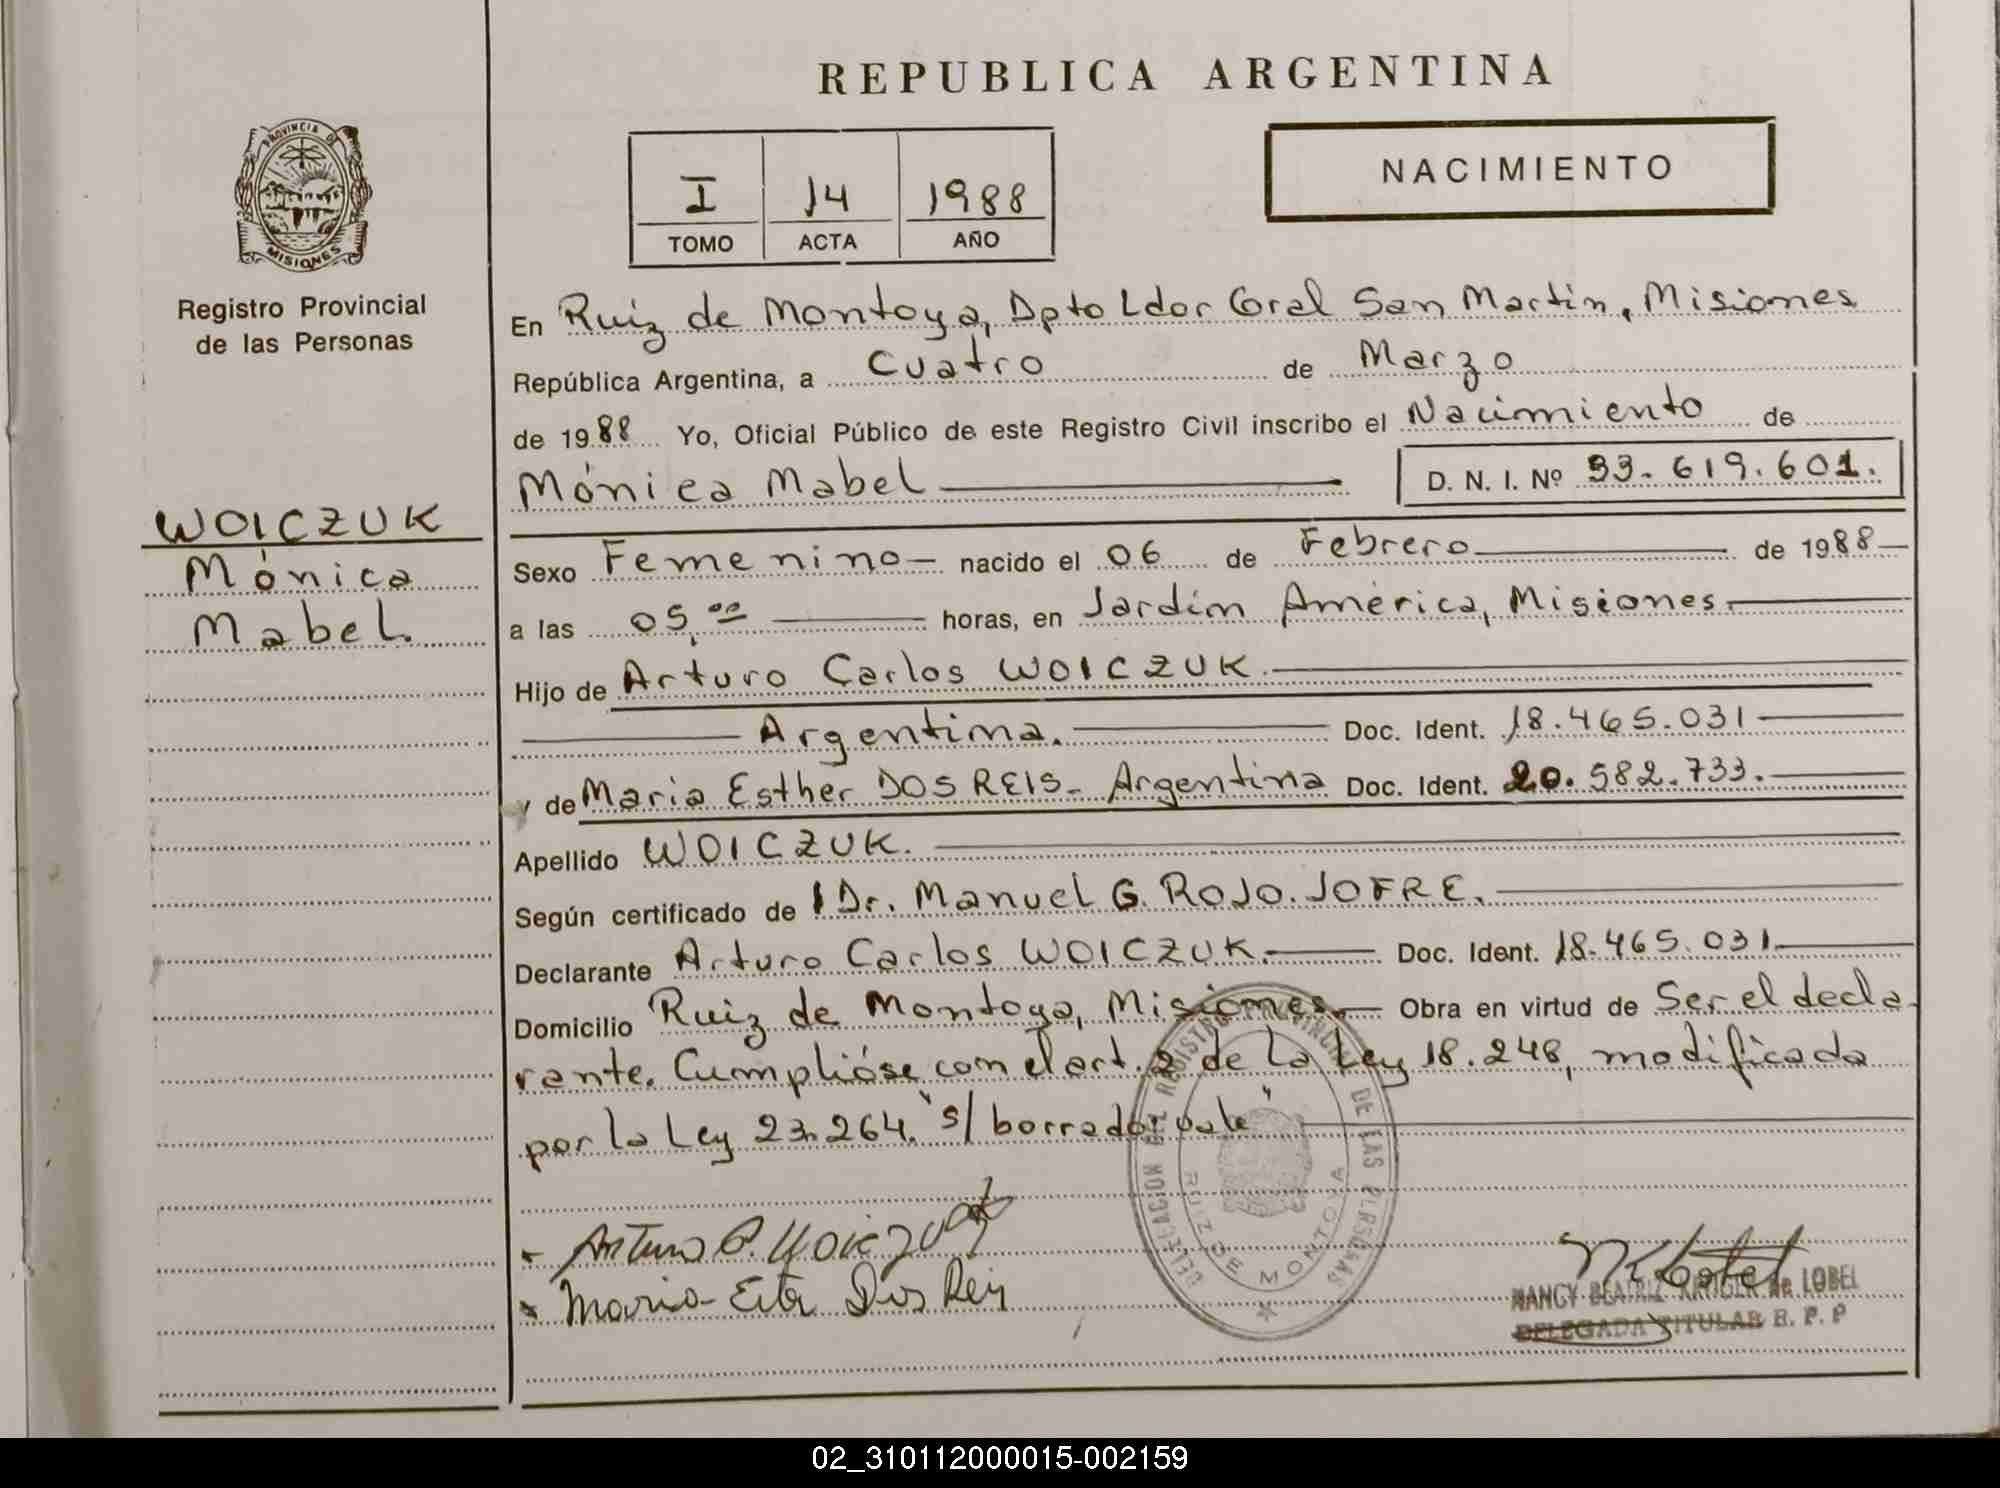 REPUBLICA ARGENTINA
PROVINCIA DE
MISIONES
Registro Provincial
de las Personas
I 14 1988
TOMO ACTA AÑO
NACIMIENTO
WOICZUK
Mónica
Mabel.
En Ruiz de Montoya, Dpto Ldor Gral San Martín, Misiones
República Argentina, a Cuatro de Marzo
de 1988 Yo, Oficial Público de este Registro Civil inscribo el Nacimiento de
Mónica Mabel D. N. I. Nº 33.619.601.
Sexo Femenino nacido el 06 de Febrero de 1988
a las 05,00 horas, en Jardín América, Misiones
Hijo de Arturo Carlos WOICZUK.
Argentina. Doc. Ident. 18.465.031
y de Maria Esther DOS REIS - Argentina Doc. Ident. 20.582.733.
Apellido WOICZUK.
Según certificado de Dr. Manuel G. ROJO. JOFRE.
Declarante Arturo Carlos WOICZUK. Doc. Ident. 18.465.031
Domicilio Ruiz de Montoya, Misiones. Obra en virtud de Ser el decla
rante. Cumplióse con el art. 2 de la Ley 18.248, modificada
por la Ley 23.264. "s/ borrador vale"
DELEGACION DEL REGISTRO PROVINCIAL DE LAS PERSONAS
RUIZ DE MONTOYA
Arturo C. Woiczuk
Maria Ester Dos Reis
NANCY BEATRIZ KRIGER de LOBEL
DELEGADA TITULAR R. P. P
02_310112000015-002159